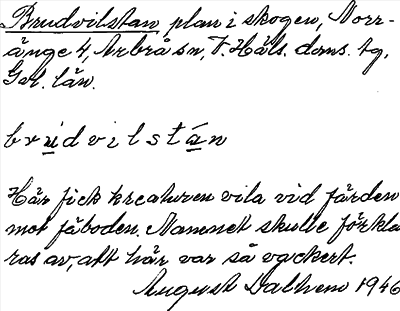 Brudvilstan, plan i skogen, Norr-
änge 4, Arbrå sn, V. Häls. doms. tg,
Gvl. län.
brudvilstán
Här fick kreaturen vila vid färden
mot fäboden. Namnet skulle förkla
ras av, att här var så vackert.
August Dalhem 1946